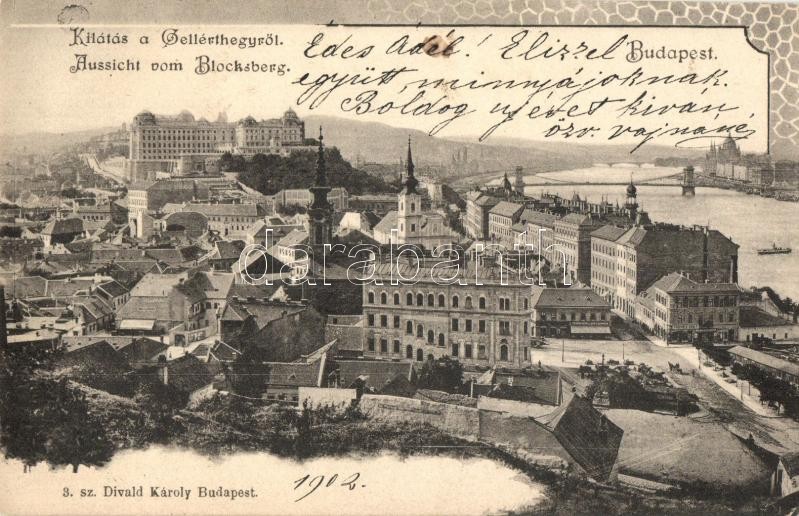 Kilátás a Gellérthegyről.
Aussicht vom Blocksberg.
Budapest.
Édes Adél! Elizzel
együtt, minnyájoknak.
Boldog uj évet kiván,
özv. vajnáné
darabanth
3. sz. Divald Károly Budapest.
1902.